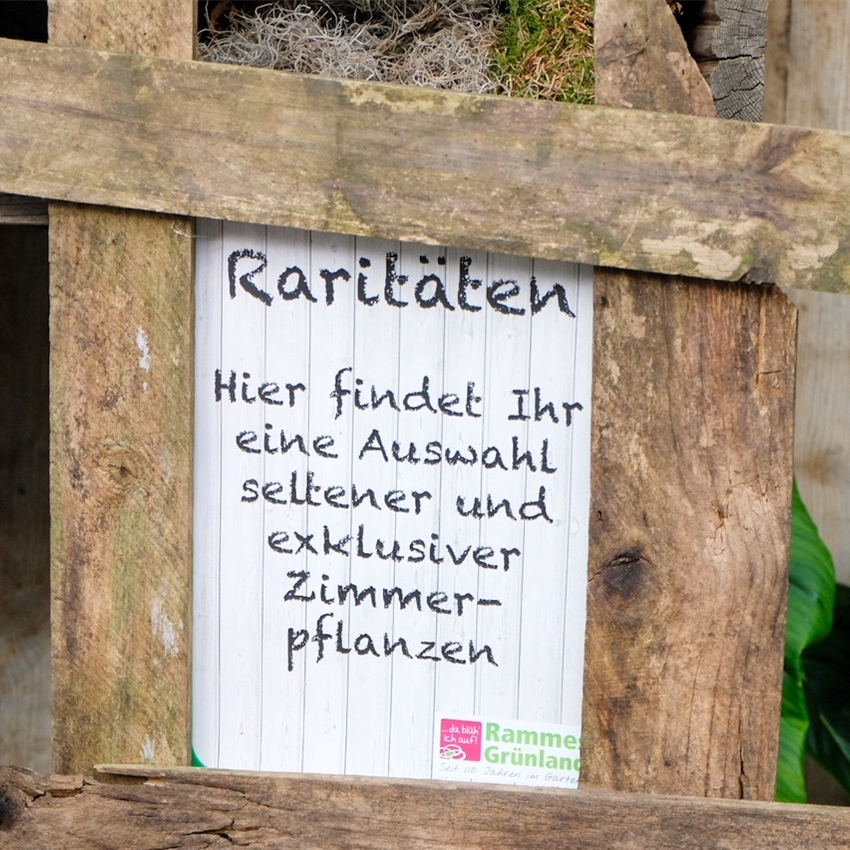 Raritäten
Hier findet Ihr
eine Auswahl
seltener und
exklusiver
Zimmer-
pflanzen
...da blüh'
ich auf!
Rammes
Grünland
Seit 110 Jahren im Garten